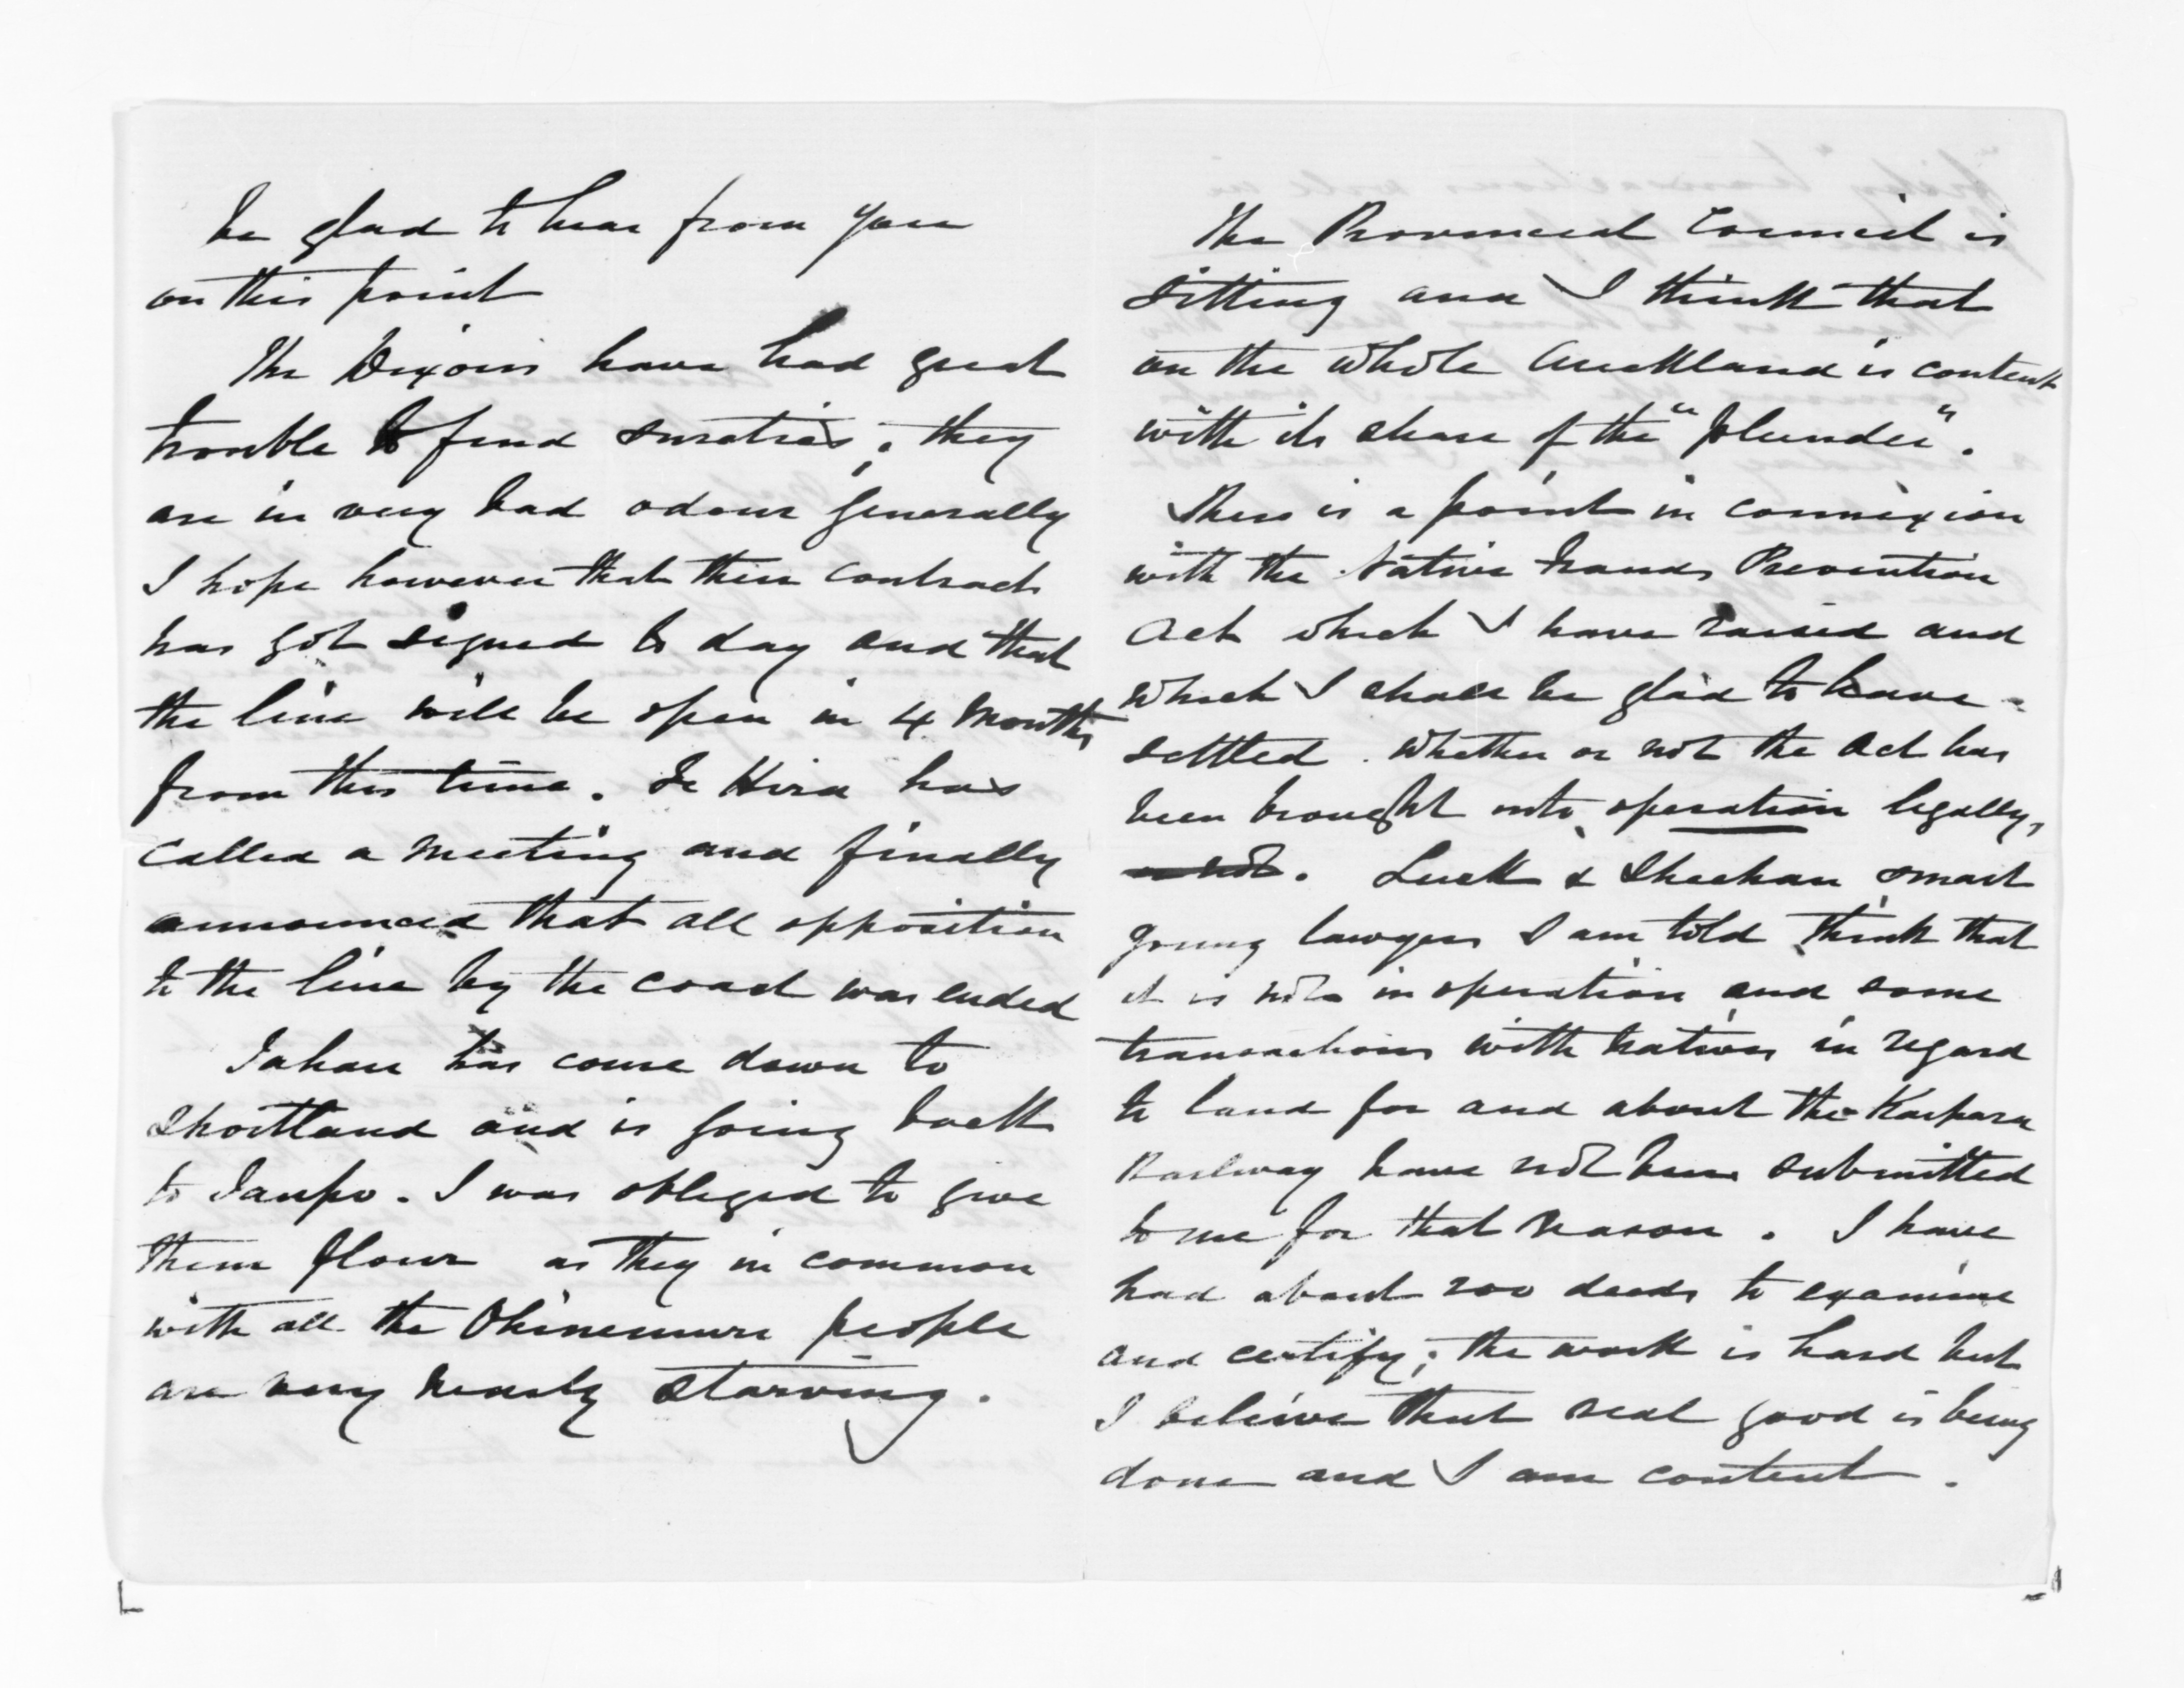 be glad to hear from you
on this point
The Dixons have had great
trouble to find sureties; they
are in very bad odour generally
I hope however that their contract
has got signed to day and that
the line will be open in 4 months
from this time. Te Hira has
called a meeting and finally
announced that all opposition
to the line by the coast was ended
has come down to
Shortland and is going back
to Taupo. I was obliged to give
them flour as they in common
with all the Ohinemuri people
are very nearly starving.
The Provincial Council is
sitting and I think that
on the whole Auckland is content
with its share of the "plunder".
There is a point in connexion
with the Native Frauds Prevention
Act which I have raised and
which I shall be glad to have
settled. whether or not the Act has
been brought into operation legally,
or not. & Sheehan smart
young lawyers I am told think that
it is not in operation and some
transactions with natives in regard
to land for and about the Kaipara
Railway have not been submitted
to me for that reason. I have
had about 200 deeds to examine
and certify; the work is hard but
I believe that real good is being
done and I am content.